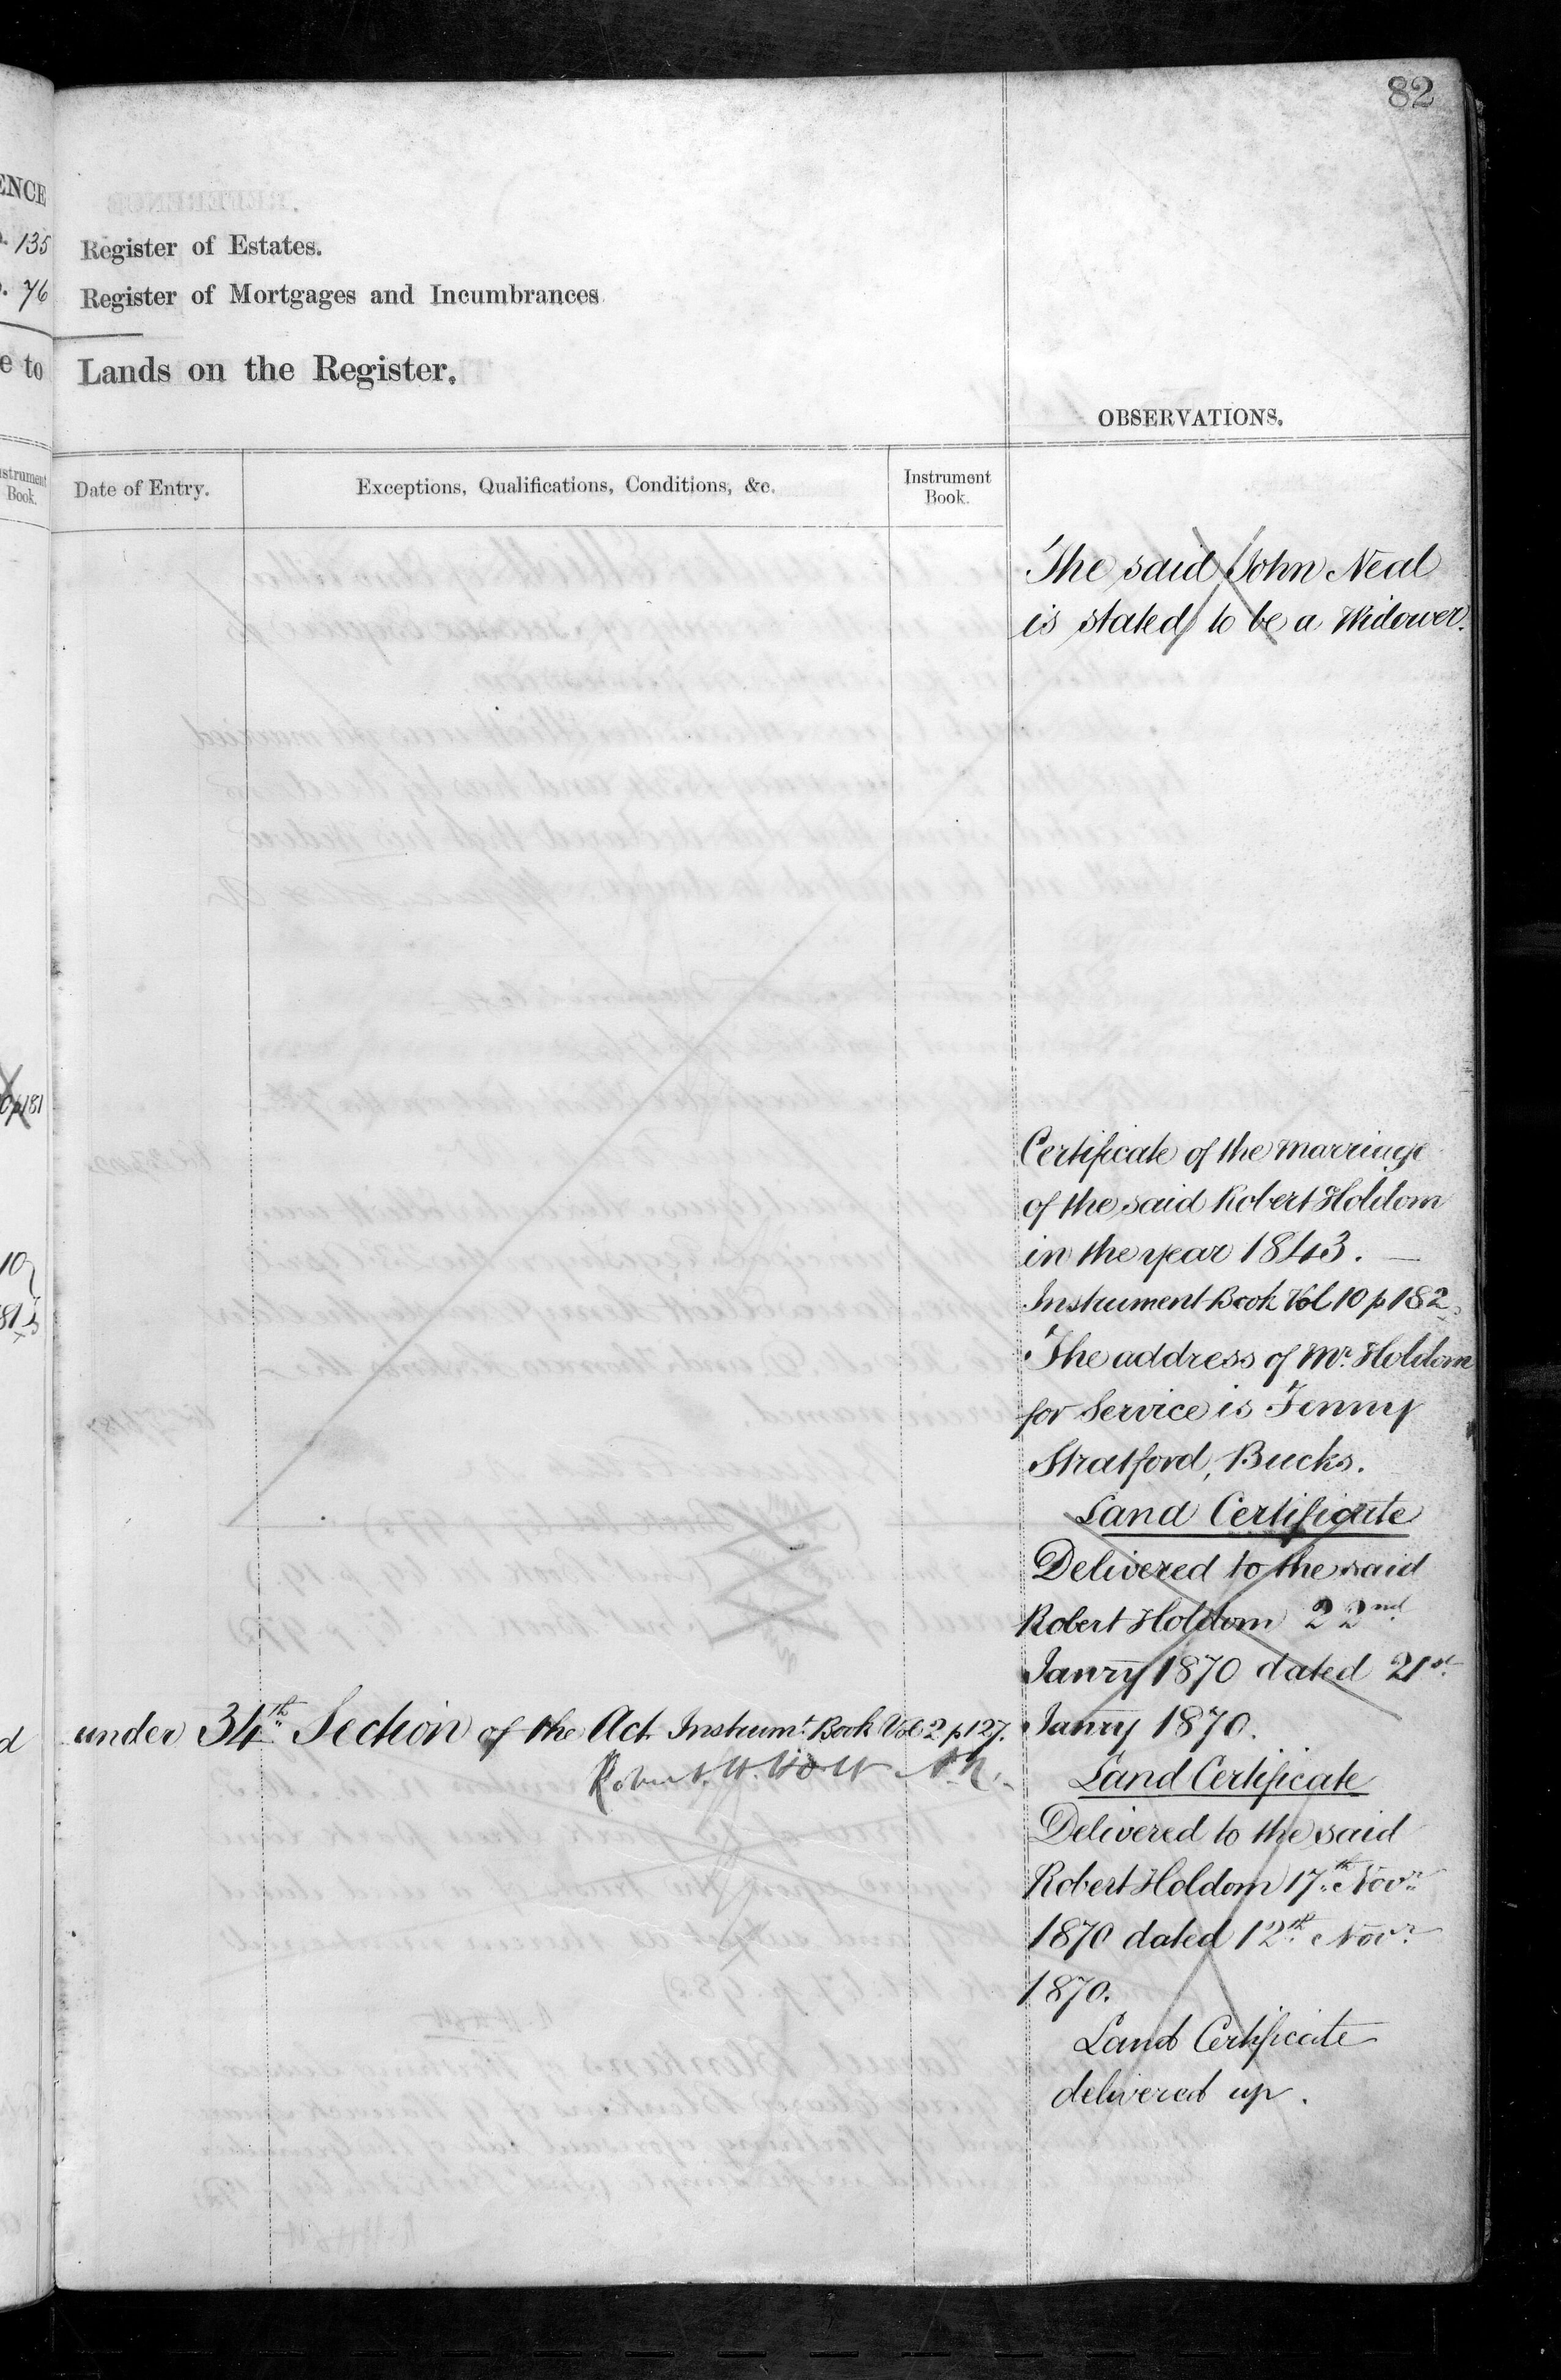 82
ENCE
135
76
Register of Estates.
Register of Mortgages and Incumbrances
e to
Lands on the Register.
OBSERVATIONS.
Instrument
Book.
Date of Entry.
Exceptions, Qualifications, Conditions, &c.
Instrument
Book.
The said John Neal
is stated to be a Widower.
p181
Certificate of the marriage
of the said Robert Holdom
in the year 1843. —
Instrument Book Vol 10 p 182.
The address of Mr. Holdom
for Service is Fenny
Stratford, Bucks.
Land Certificate
Delivered to the said
Robert Holdom 22nd
Janry 1870 dated 21st
Janry 1870.
under 34th Section of the Act Instrumt. Book Vol 2 p 127.
Robert. H. Holt A.R.
Land Certificate
Delivered to the said
Robert Holdom 17th Novr
1870 dated 12th Novr
1870.
Land Certificate
delivered up.